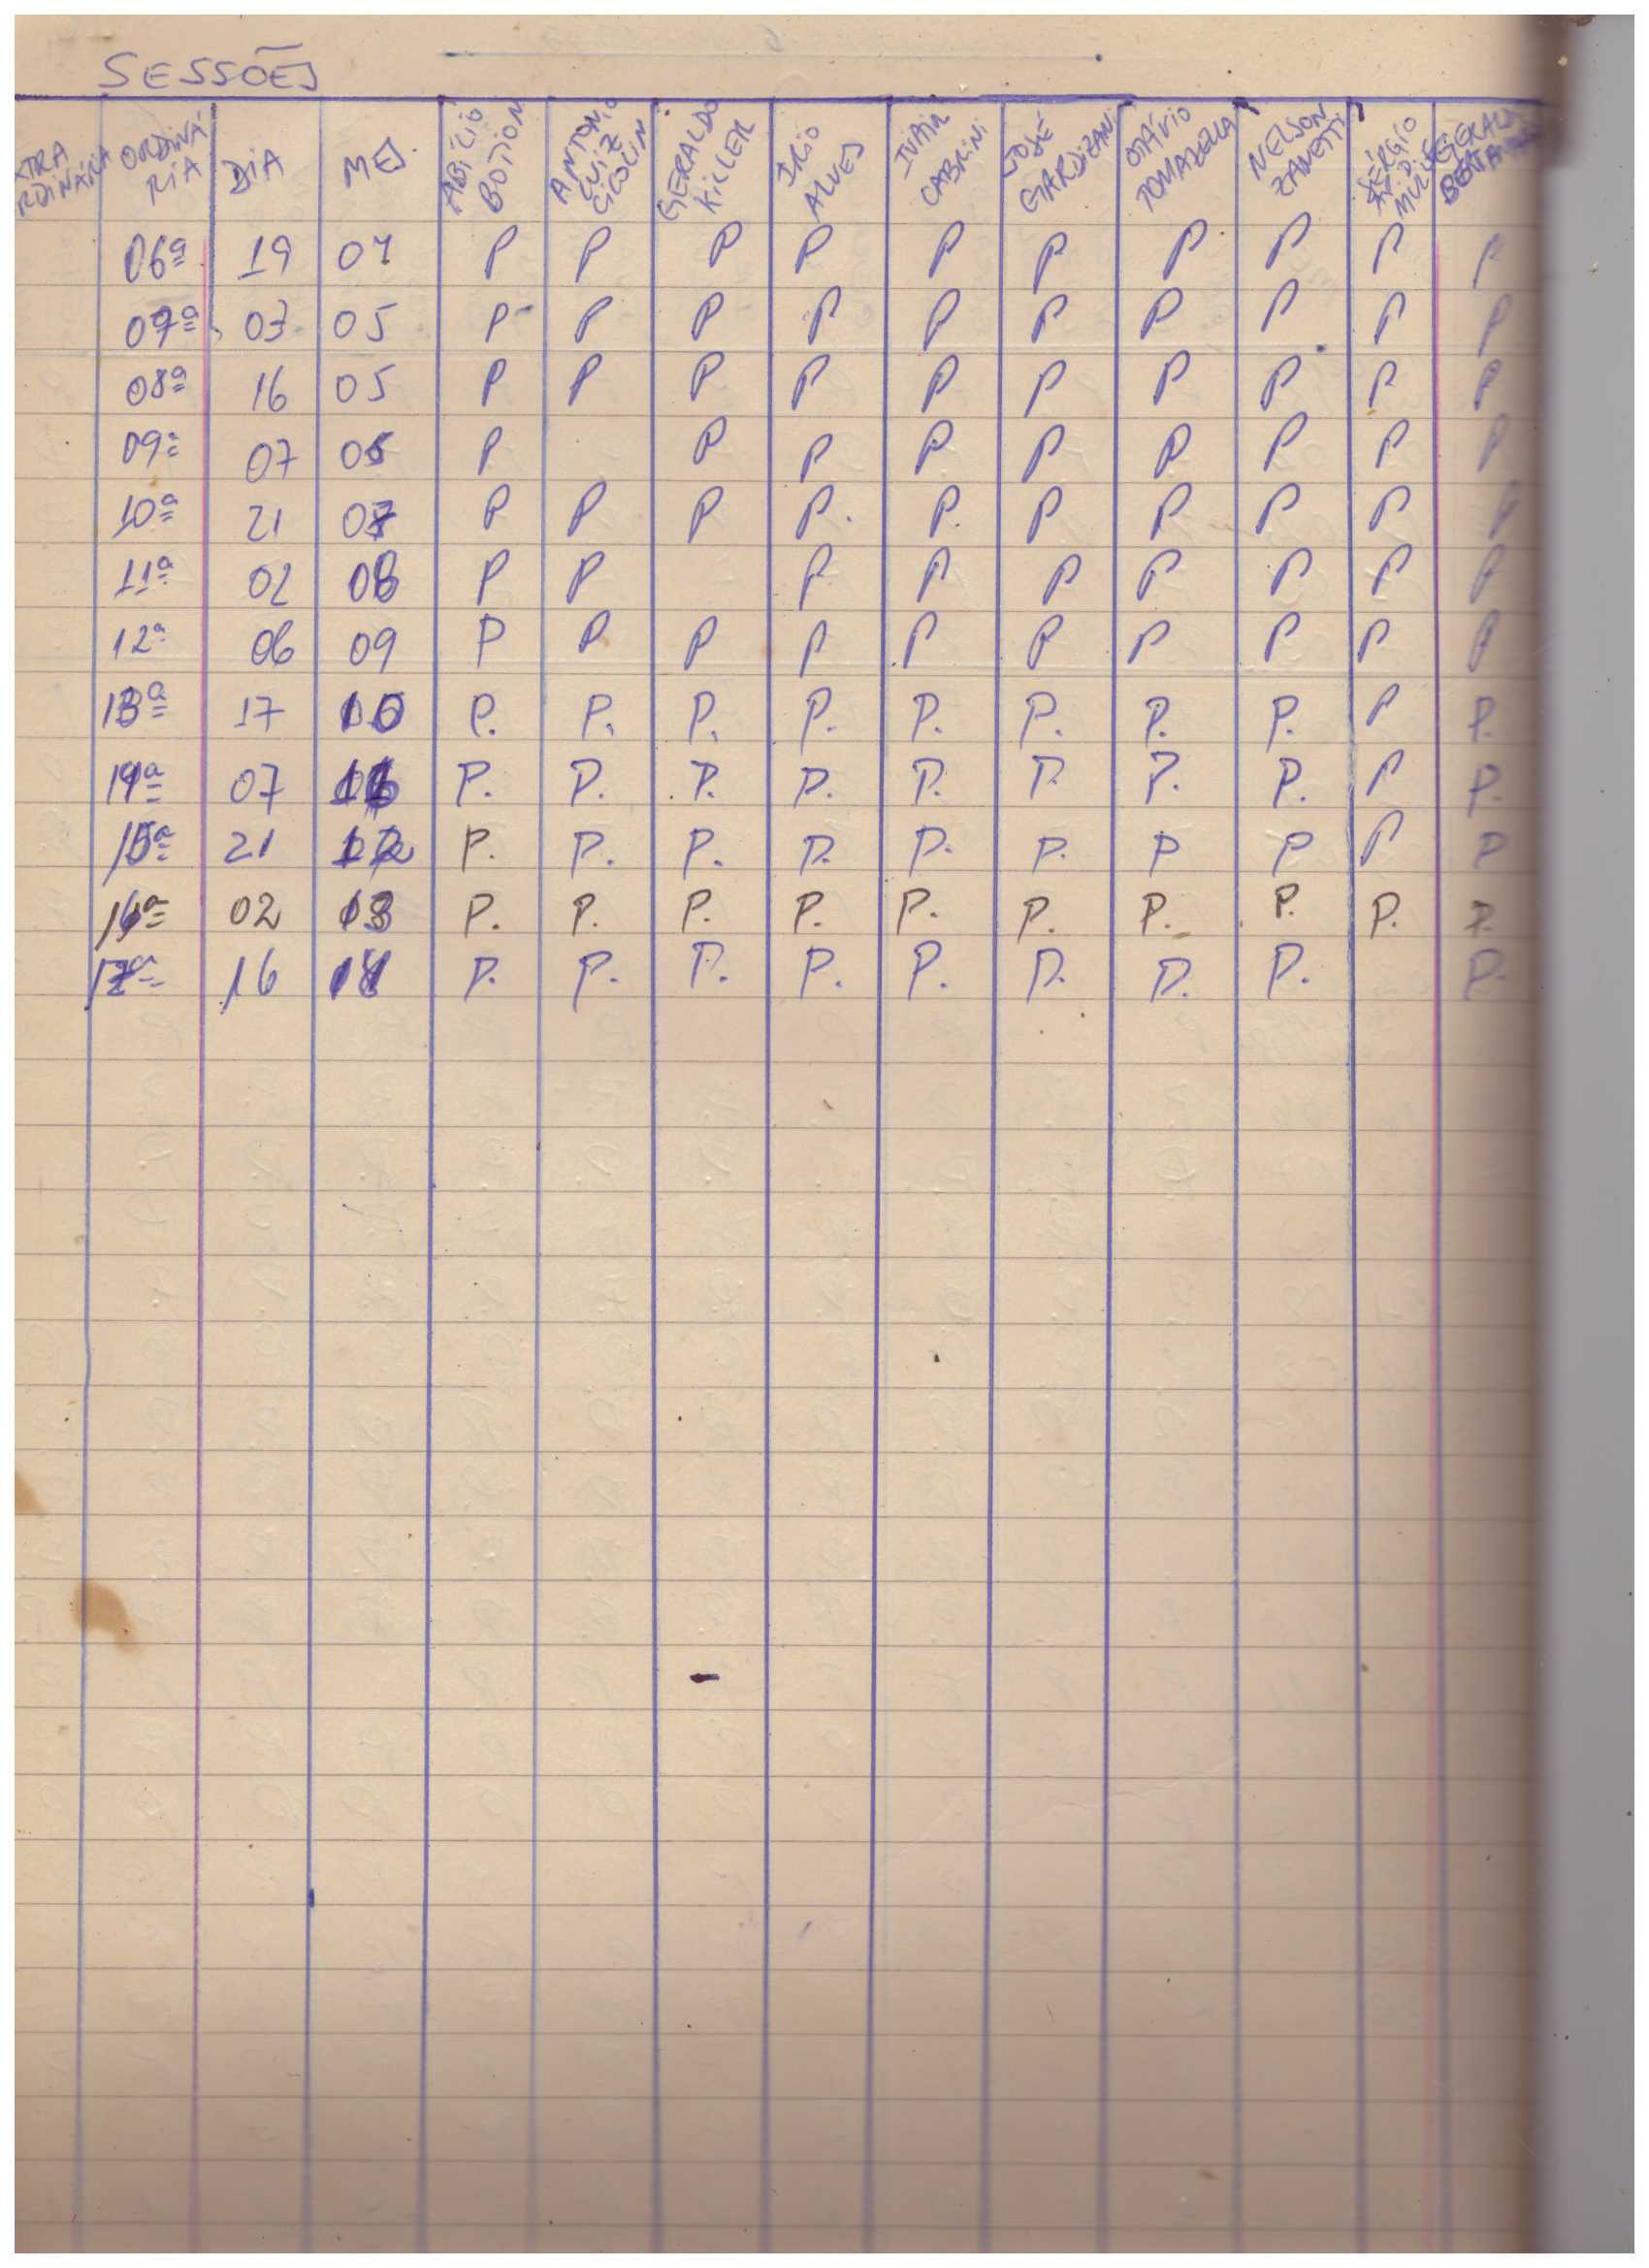 SESSÕES
XTRA RDINÁRIA ORDINÁ-RIA DIA MES ABÍLIO BOTION ANTONIO LUIZ CICOLIN GERALDO KILLER ÍRIO ALVES IVAIR CABRINI JOSÉ GARDIZANI OTÁVIO TOMAZELLA NELSON ZANETTI SÉRGIO
06ª 19 04 P P P P P P P P P P
07ª 03 05 P P P P P P P P P P
08ª 16 05 P P P P P P P P P P
09ª 07 P P P P P P P P P
10ª 21 P P P P. P. P P P P P
11ª 02 08 P P P P P P P P P
12ª 06 09 P P P P P P P P P P
13ª 17 10 P. P. P. P. P. P. P. P. P P.
14ª 07 11 P. P. P. P. P. P. P. P. P P.
15ª 21 P. P. P. P. P. P. P P P P
16ª 02 P. P. P. P. P. P. P. P. P. P.
17ª 16 P. P. P. P. P. P. P. P. P.